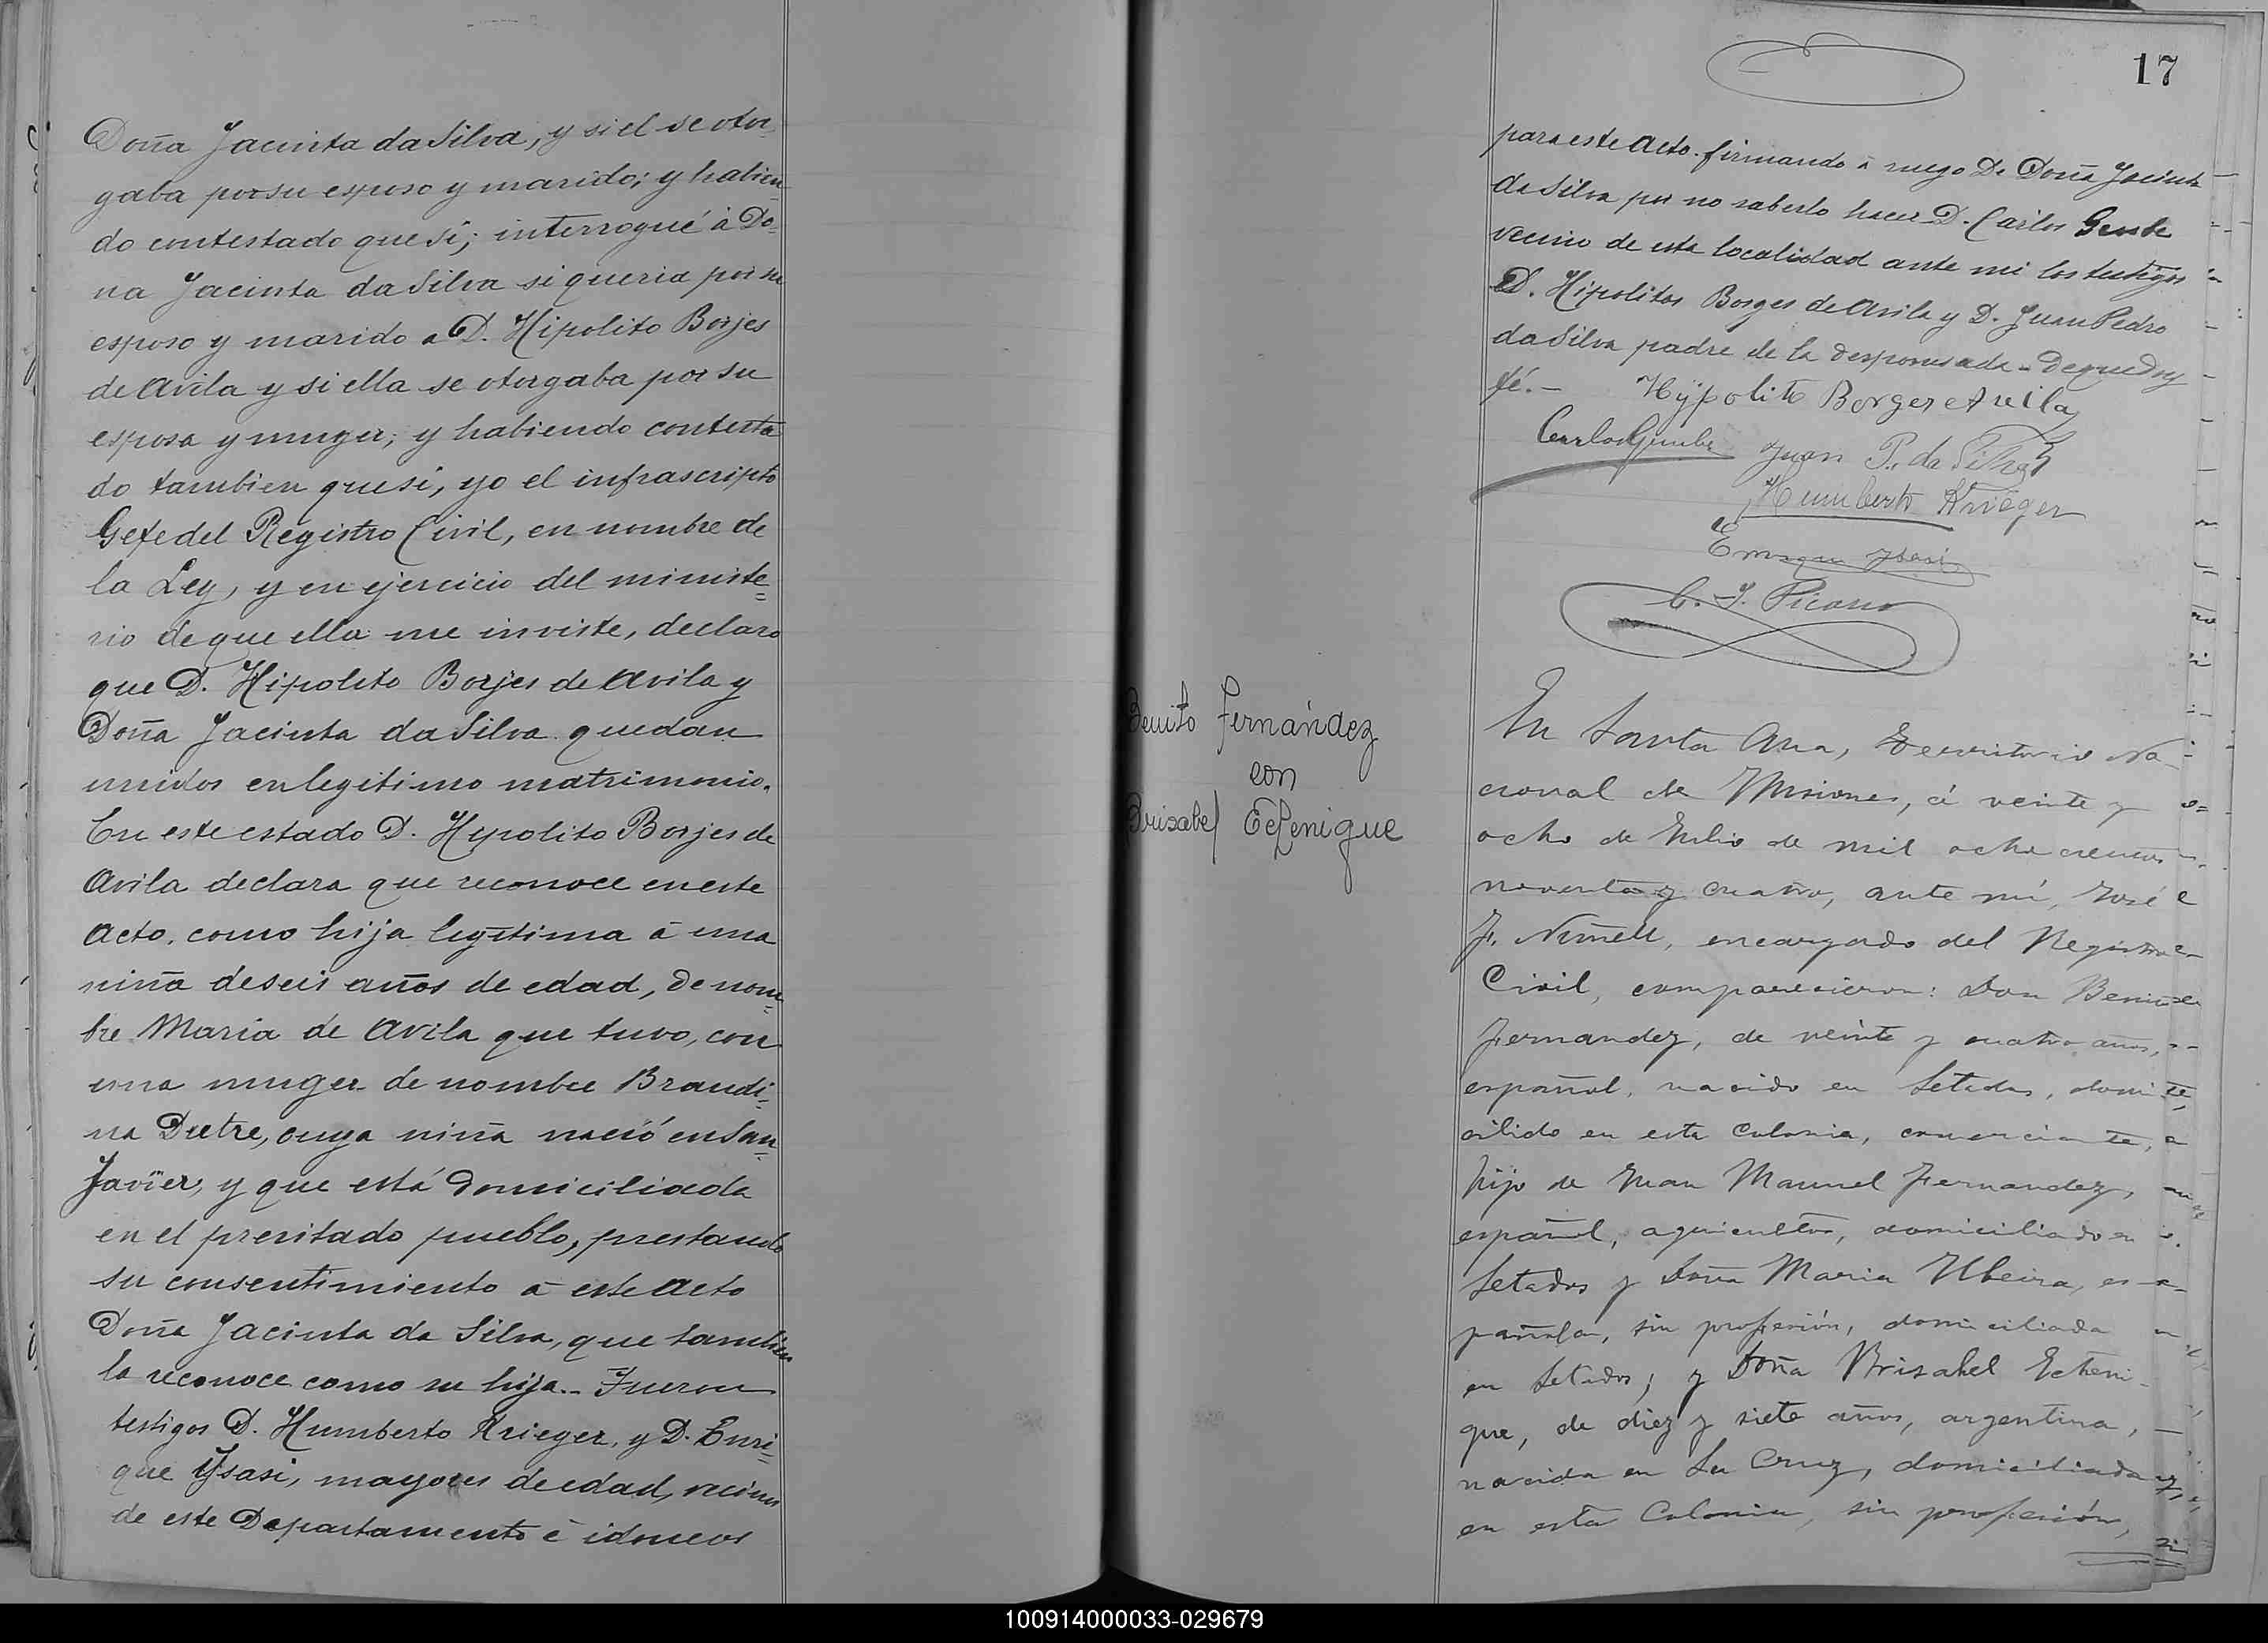 Doña Jacinta da Silva, y si el se otor
gaba por su esposo y marido; y habien
do contestado que sí; interrogué á Do=
na Jacinta da Silva si queria por su
esposo y marido a D. Hipolito Borjes
de Avila y si ella se otorgaba por su
esposa y muger; y habiendo contesta
do tambien que sí, yo el infrascripto
Gefe del Registro Civil, en nombre de
la Ley, y en ejercicio del ministe=
rio de que ella me inviste, declaro
que D. Hipolito Borjes de Avila y
Doña Jacinta da Silva quedan
unidos en legitimo matrimonio.
En este estado D. Hypolito Borjes de
Avila declara que reconoce en este
Acto, como hija legitima á una
niña de seis años de edad, de nom=
bre Maria de Avila que tuvo, con
una muger de nombre Brandi=
na Dutre, cuya niña nació en San
Javier, y que está domiciliada
en el precitado pueblo, prestando
su consentimiento á este Acto
Doña Jacinta da Silva, que tambien
la reconoce como su hija.- Fueron
testigos D. Humberto Krieger, y D. Enri=
que Ysasi, mayores de edad, vecinos
de este Departamento é idoneos
17
para este Acto. firmando á ruego De Doña Jacinta
da Silva por no saberlo hacer D. Carlos
vecino de esta localidad ante mi los testigos
D. Hipolitos Borges de Avila y D. Juan Pedro
da Silva padre de la desposada - De que doy
fé.- Hÿpolito Borges Avila
Carlos Juan P. da Silva
Humberto Krieger
Enrique Ysasi
C. J. Picasso
Benito Fernández
con
Brisabel Echenique
En Santa Ana, Territorio Na-
cional de Misiones, á veinte y
ocho de Julio de mil ochocientos
noventa y cuatro, ante mí, José
F. encargado del Registro
Civil, comparecieron: Don Benito
Fernandez, de veinte y cuatro años,
español, nacido en Setados, domi
ciliado en esta Colonia, comerciante,
hijo de Juan Manuel Fernandez,
español, agricultor, domiciliado en
Setados y Doña Maria Ubeira, es-
pañola, sin profesión, domiciliada
en Setados; y Doña Brisabel Echeni-
que, de diez y siete años, argentina,
nacida en La Cruz, domiciliada
en esta Colonia, sin profesión,
100914000033-029679